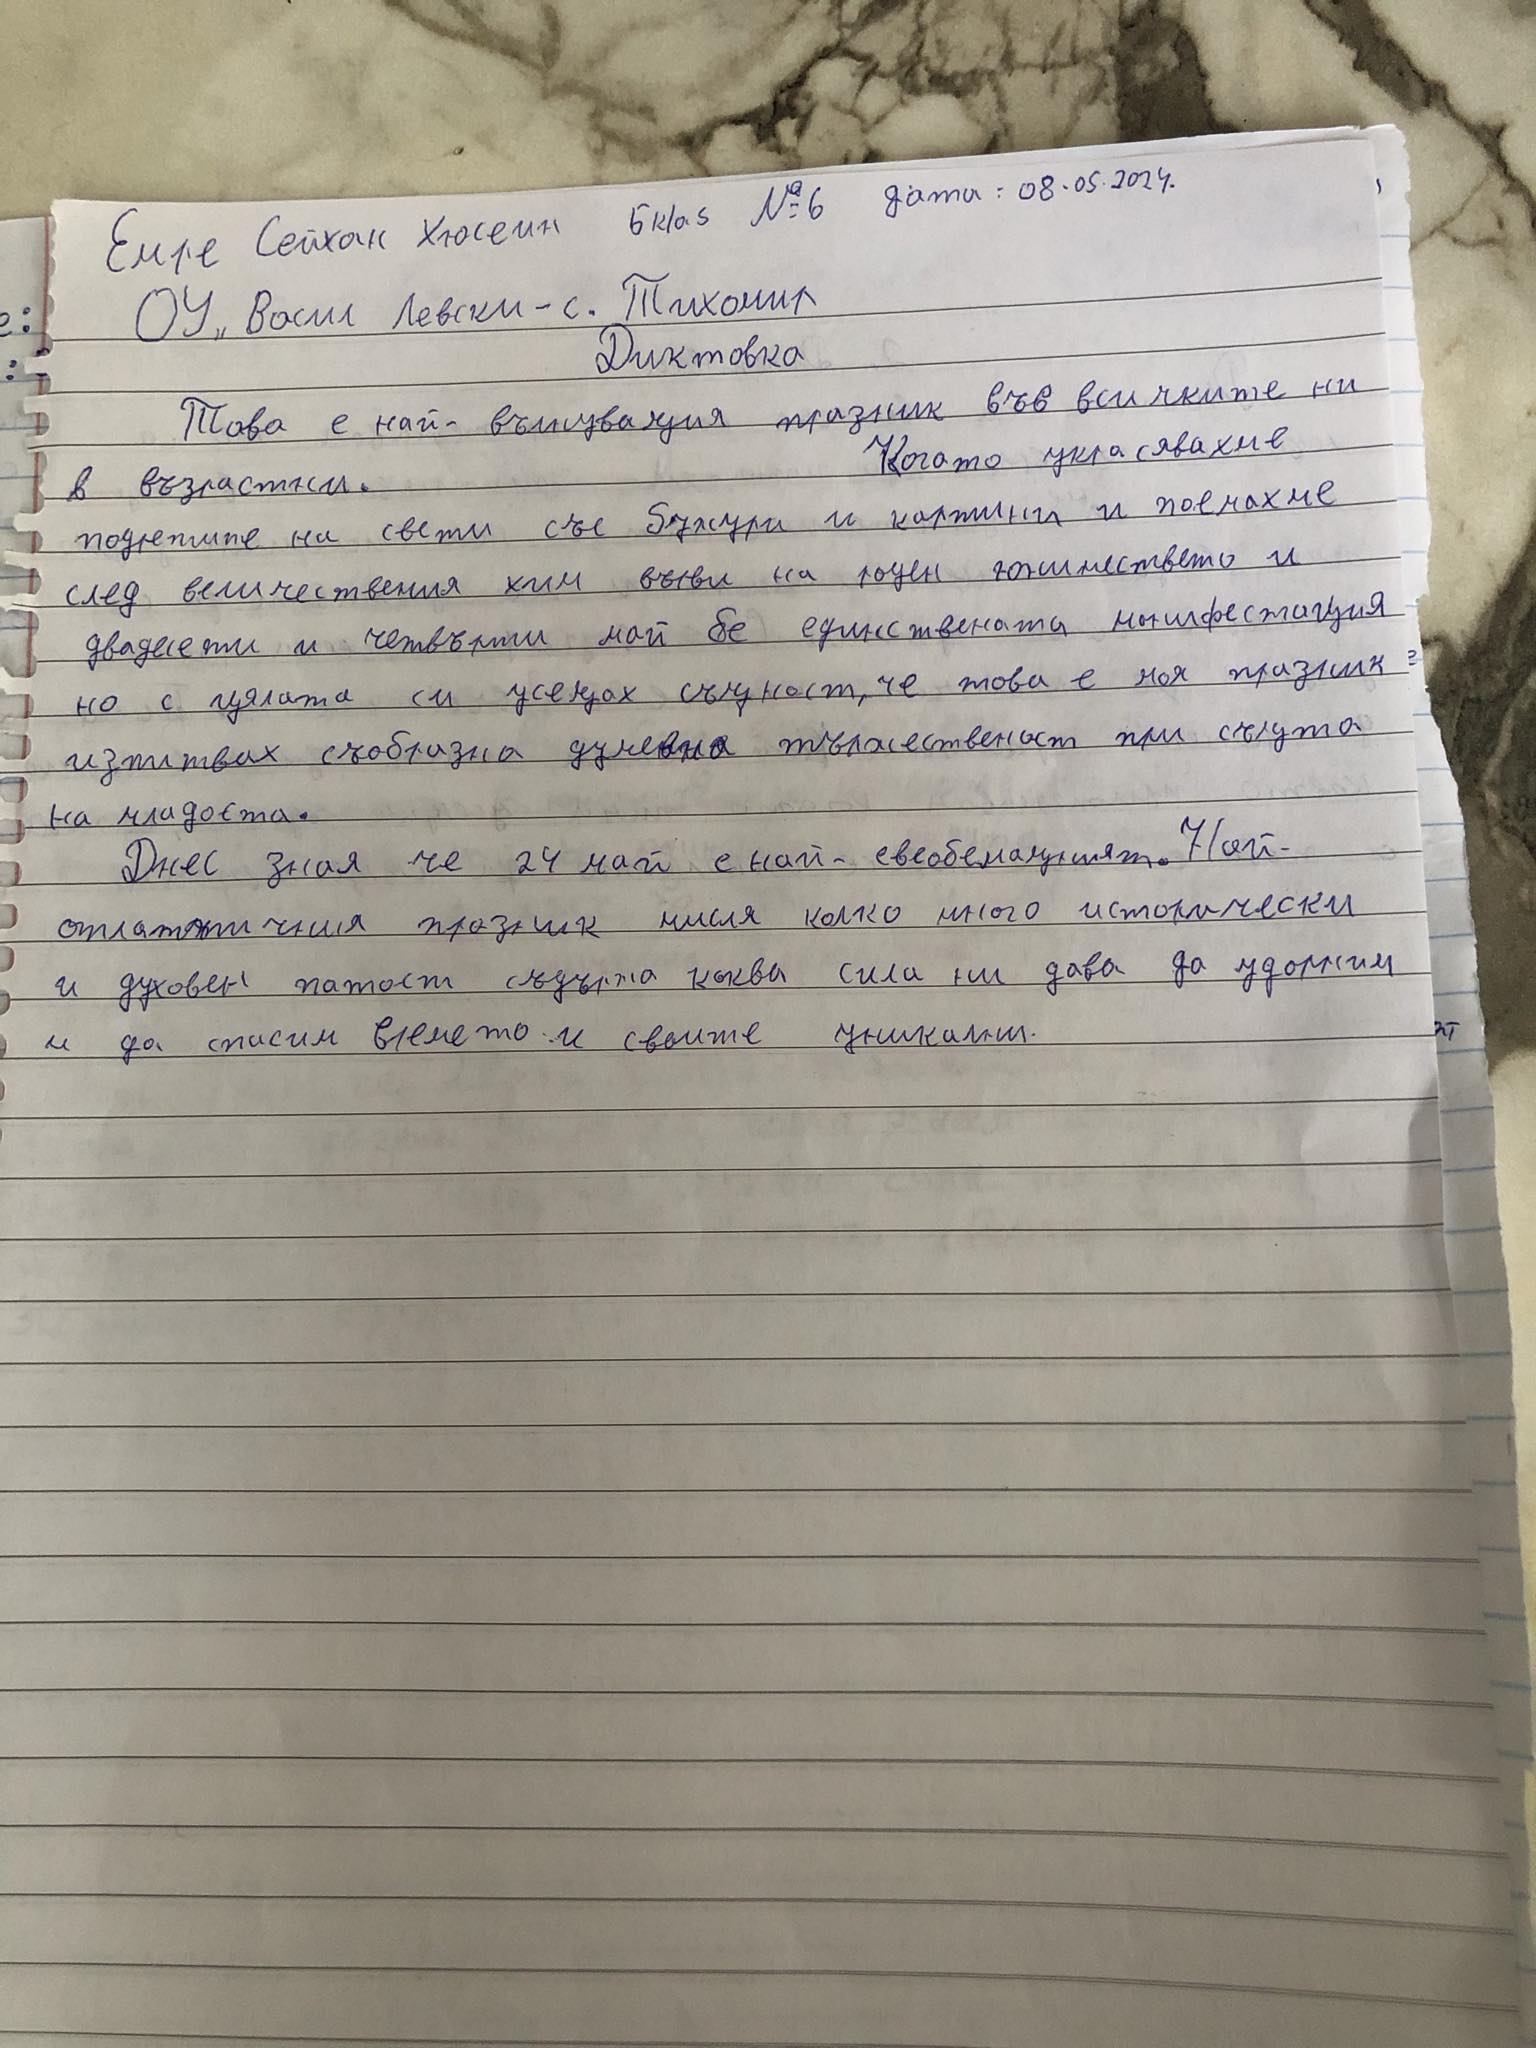 Емре Сейхан Хюсеин 5klas №6 дата: 08.05.2024.
ОУ „Васил Левски - с. Тихомир
Диктовка
Това е най- вълнуващия празник във всичките ни
в възрастни. Когато украсявахме
на свети със и картини и поемахме
след величествения хим на и
и четвърти май бе единствената
но с цялата си усещах същност, че това е моя празник
изпитвах съобразна душевна при
на младоста.
Днес зная че 24 май е най- Най-
празник мисля колко много исторически
и духовен съдържа каква сила ни дава да
и да спасим времето и своите уникални.